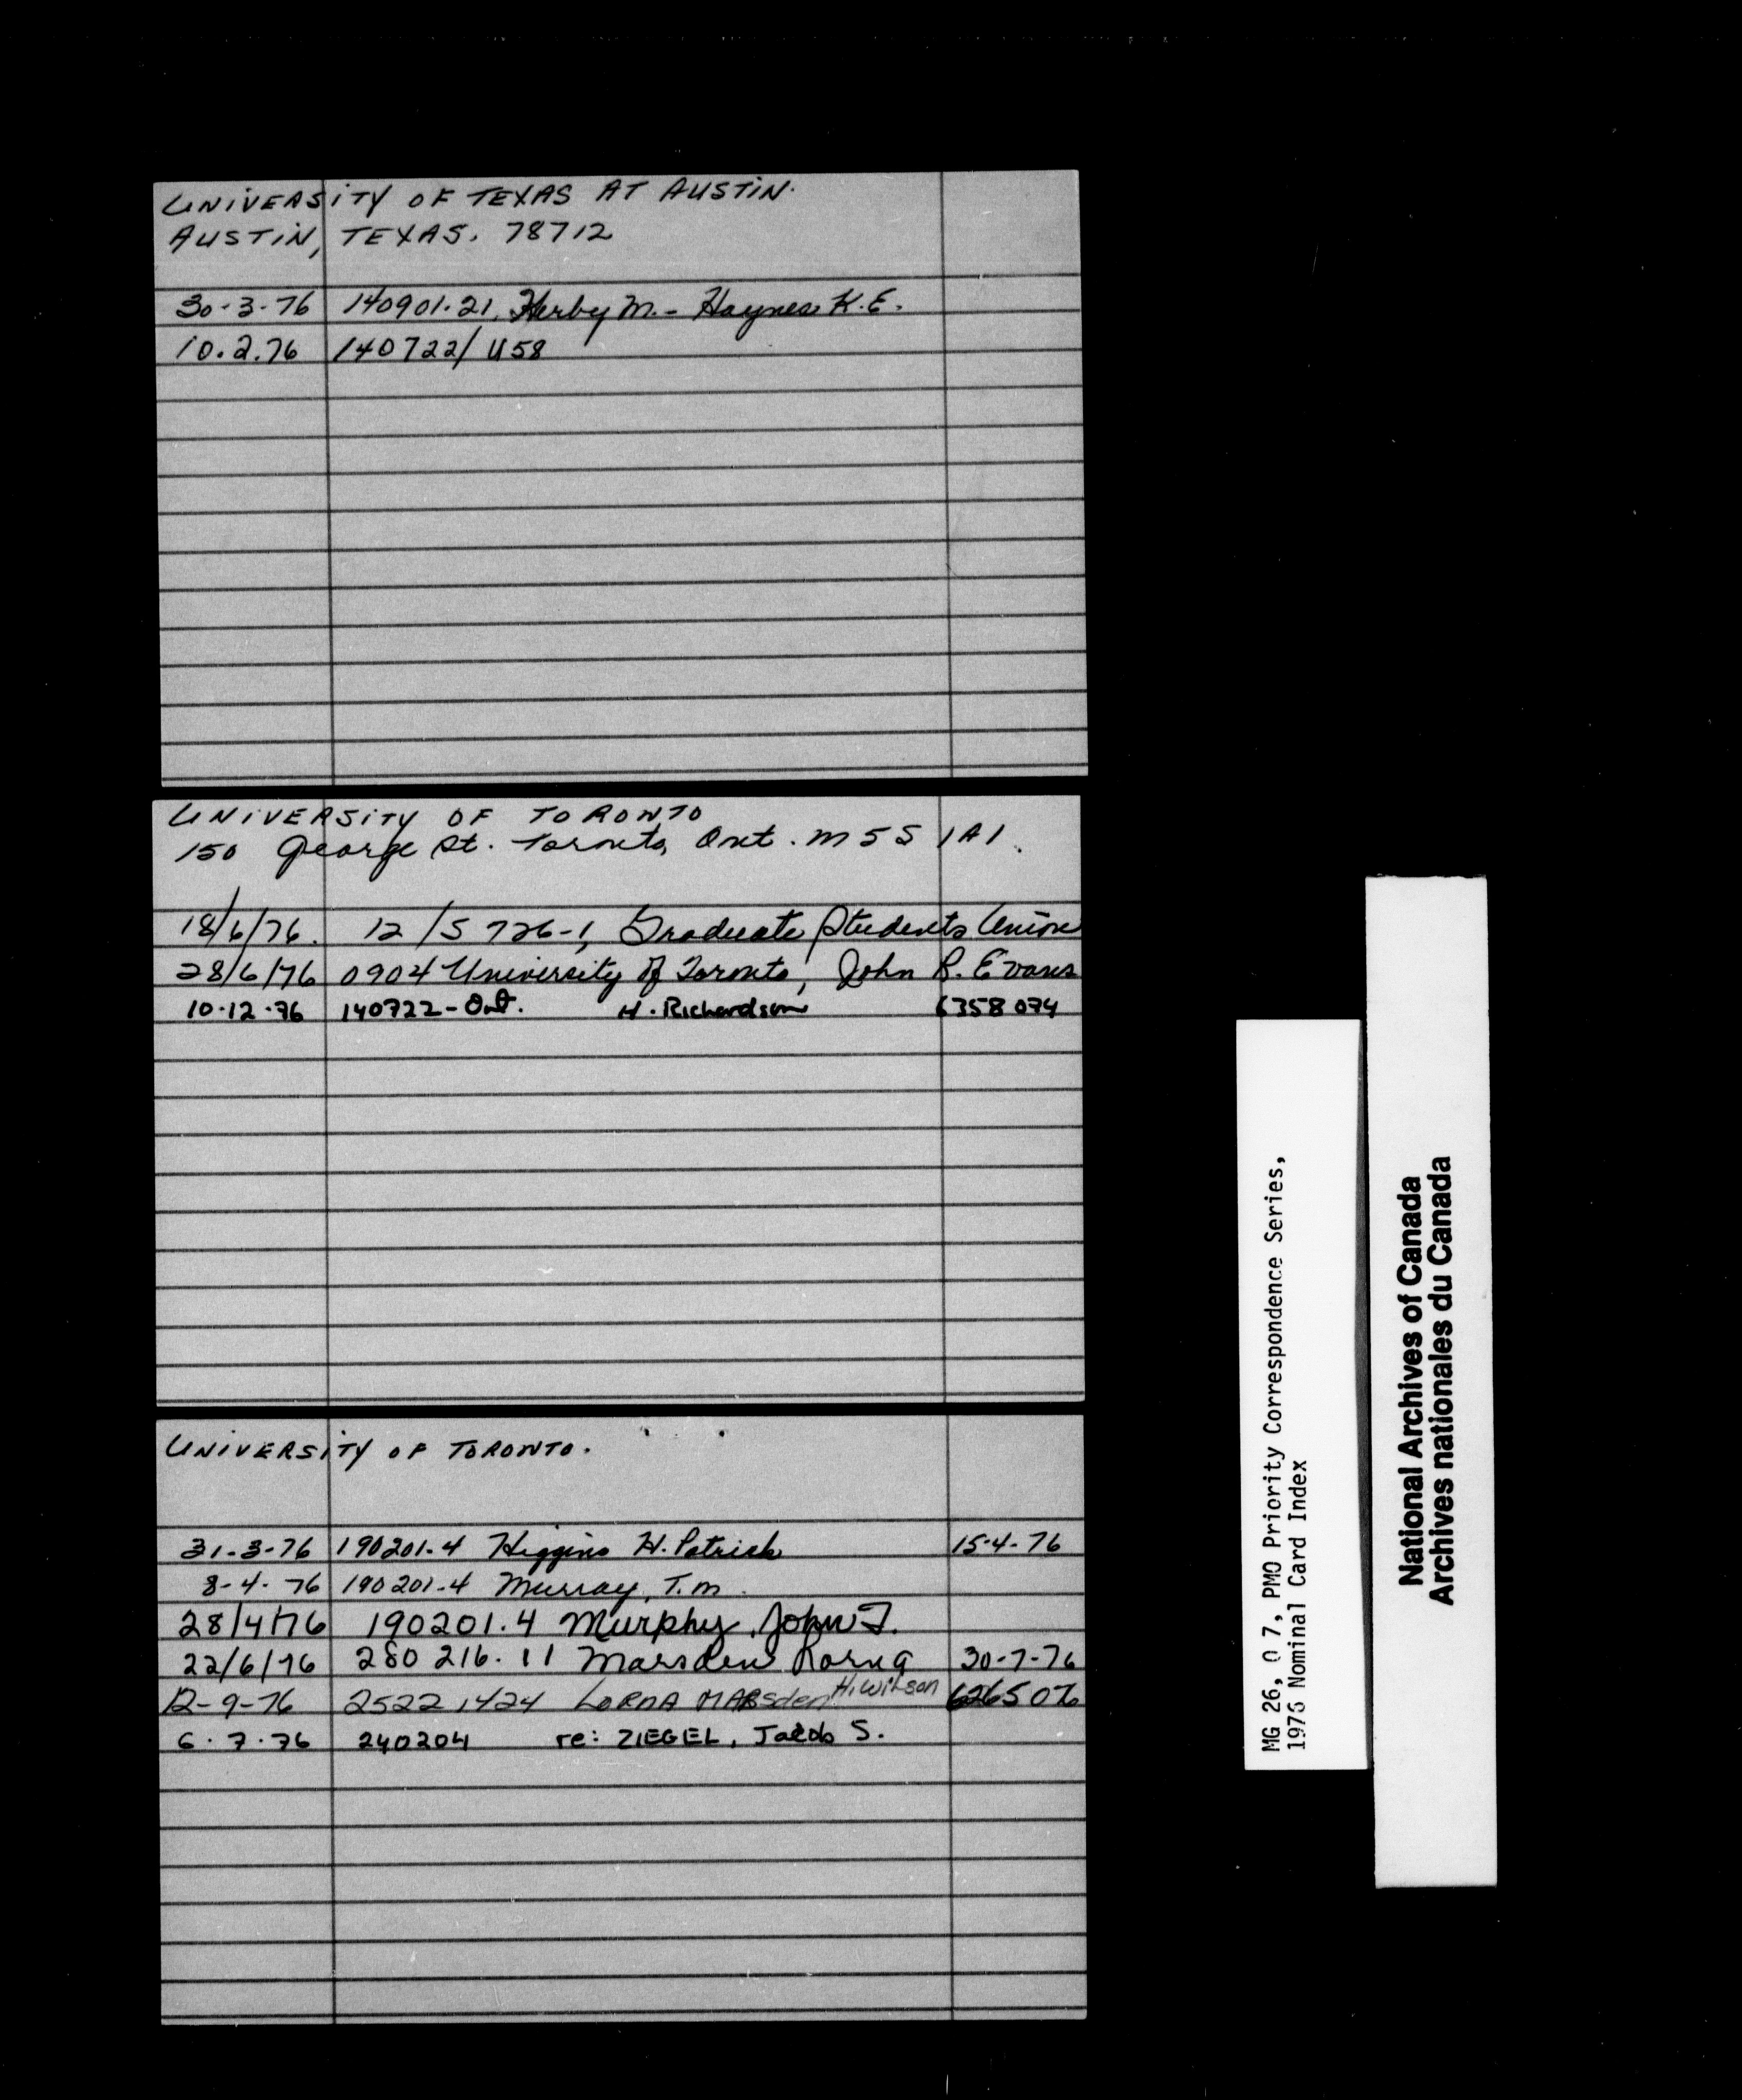 UNIVERSITY OF TEXAS AT AUSTIN.
AUSTIN, TEXAS. 78712
30-3-76 140901.21, Herby M. - Haynes K.E.
10.2.76 140722/U58
UNIVERSITY OF TORONTO
150 George St. Toronto, Ont. M5S 1A1.
18/6/76. 12/S 726-1, Graduate Students Union
28/6/76 0904 University of Toronto, John R. Evans
10-12-76 140722-Ont. H. Richardson 6358074
UNIVERSITY OF TORONTO.
31-3-76 190201-4 Higgins H. Patrick 15-4-76
8-4-76 190201-4 Murray, T.M.
28/4/76 190201.4 Murphy, John J.
22/6/76 280216.11 Marsden Lorna 30-7-76
12-9-76 25221424 LORNA MARSden H. Wilson 6265076
6.7.76 240204 re: ZIEGEL, Jacob S.
MG 26, O 7, PMO Priority Correspondence Series,
1976 Nominal Card Index
National Archives of Canada
Archives nationales du Canada